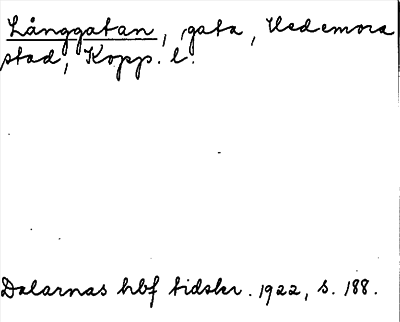 Långgatan, gata, Hedemora
stad, Kopp. l.
Dalarnas hbf tidskr. 1922, s. 188.